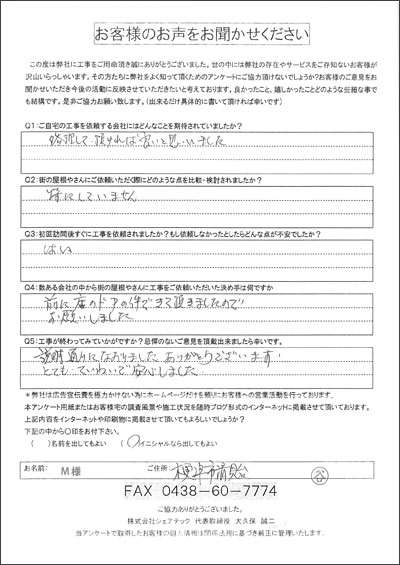 お客様のお声をお聞かせください
この度は弊社に工事をご用命頂き誠にありがとうございました。世の中には弊社の存在やサービスをご存知ないお客様が
沢山いらっしゃいます。その方たちに弊社をよく知って頂くためのアンケートにご協力頂けないでしょうか?お客様のご意見をお
聞かせいただき今後の活動に反映させていただきたいと考えております。良かったこと、嬉しかったことどのような些細な事で
も結構です。是非ご協力お願い致します。(出来るだけ具体的に書いて頂ければ幸いです)
Q1:ご自宅の工事を依頼する会社にはどんなことを期待されていましたか?
修理して頂ければ良いと思いました
Q2:街の屋根やさんにご依頼いただく際にどのような点を比較・検討されましたか?
特にしていません
Q3:初回訪問後すぐに工事を依頼されましたか?もし依頼しなかったとしたらどんな点が不安でしたか?
はい
Q4:数ある会社の中から街の屋根やさんに工事をご依頼いただいた決め手は何ですか
前に庭のドアの件できて頂きましたので
お願いしました
Q5:工事が終わってみていかがですか?忌憚のないご意見を頂戴出来ましたら幸いです。
説明通りになおりました ありがとうございます
とても ていねいで安心しました
*弊社は広告宣伝費を極力かけない為にホームページだけを頼りにお客様への営業活動を行っております。
本アンケート用紙またはお客様宅の調査風景や施工状況を随時ブログ形式のインターネットに掲載させて頂いております。
上記内容をインターネットや印刷物に掲載させて頂いてもよろしいでしょうか?
下記の中から〇印をお付下さい。
( )名前を出してもよい (〇)イニシャルなら出してもよい
お名前: M様 ご住所: 木更津市請西台
谷
FAX 0438-60-7774
ご協力ありがとうございました。
株式会社シェアテック 代表取締役 大久保 誠二
当アンケートで取得したお客様の個人情報は関係法規に基づき厳正に管理いたします。